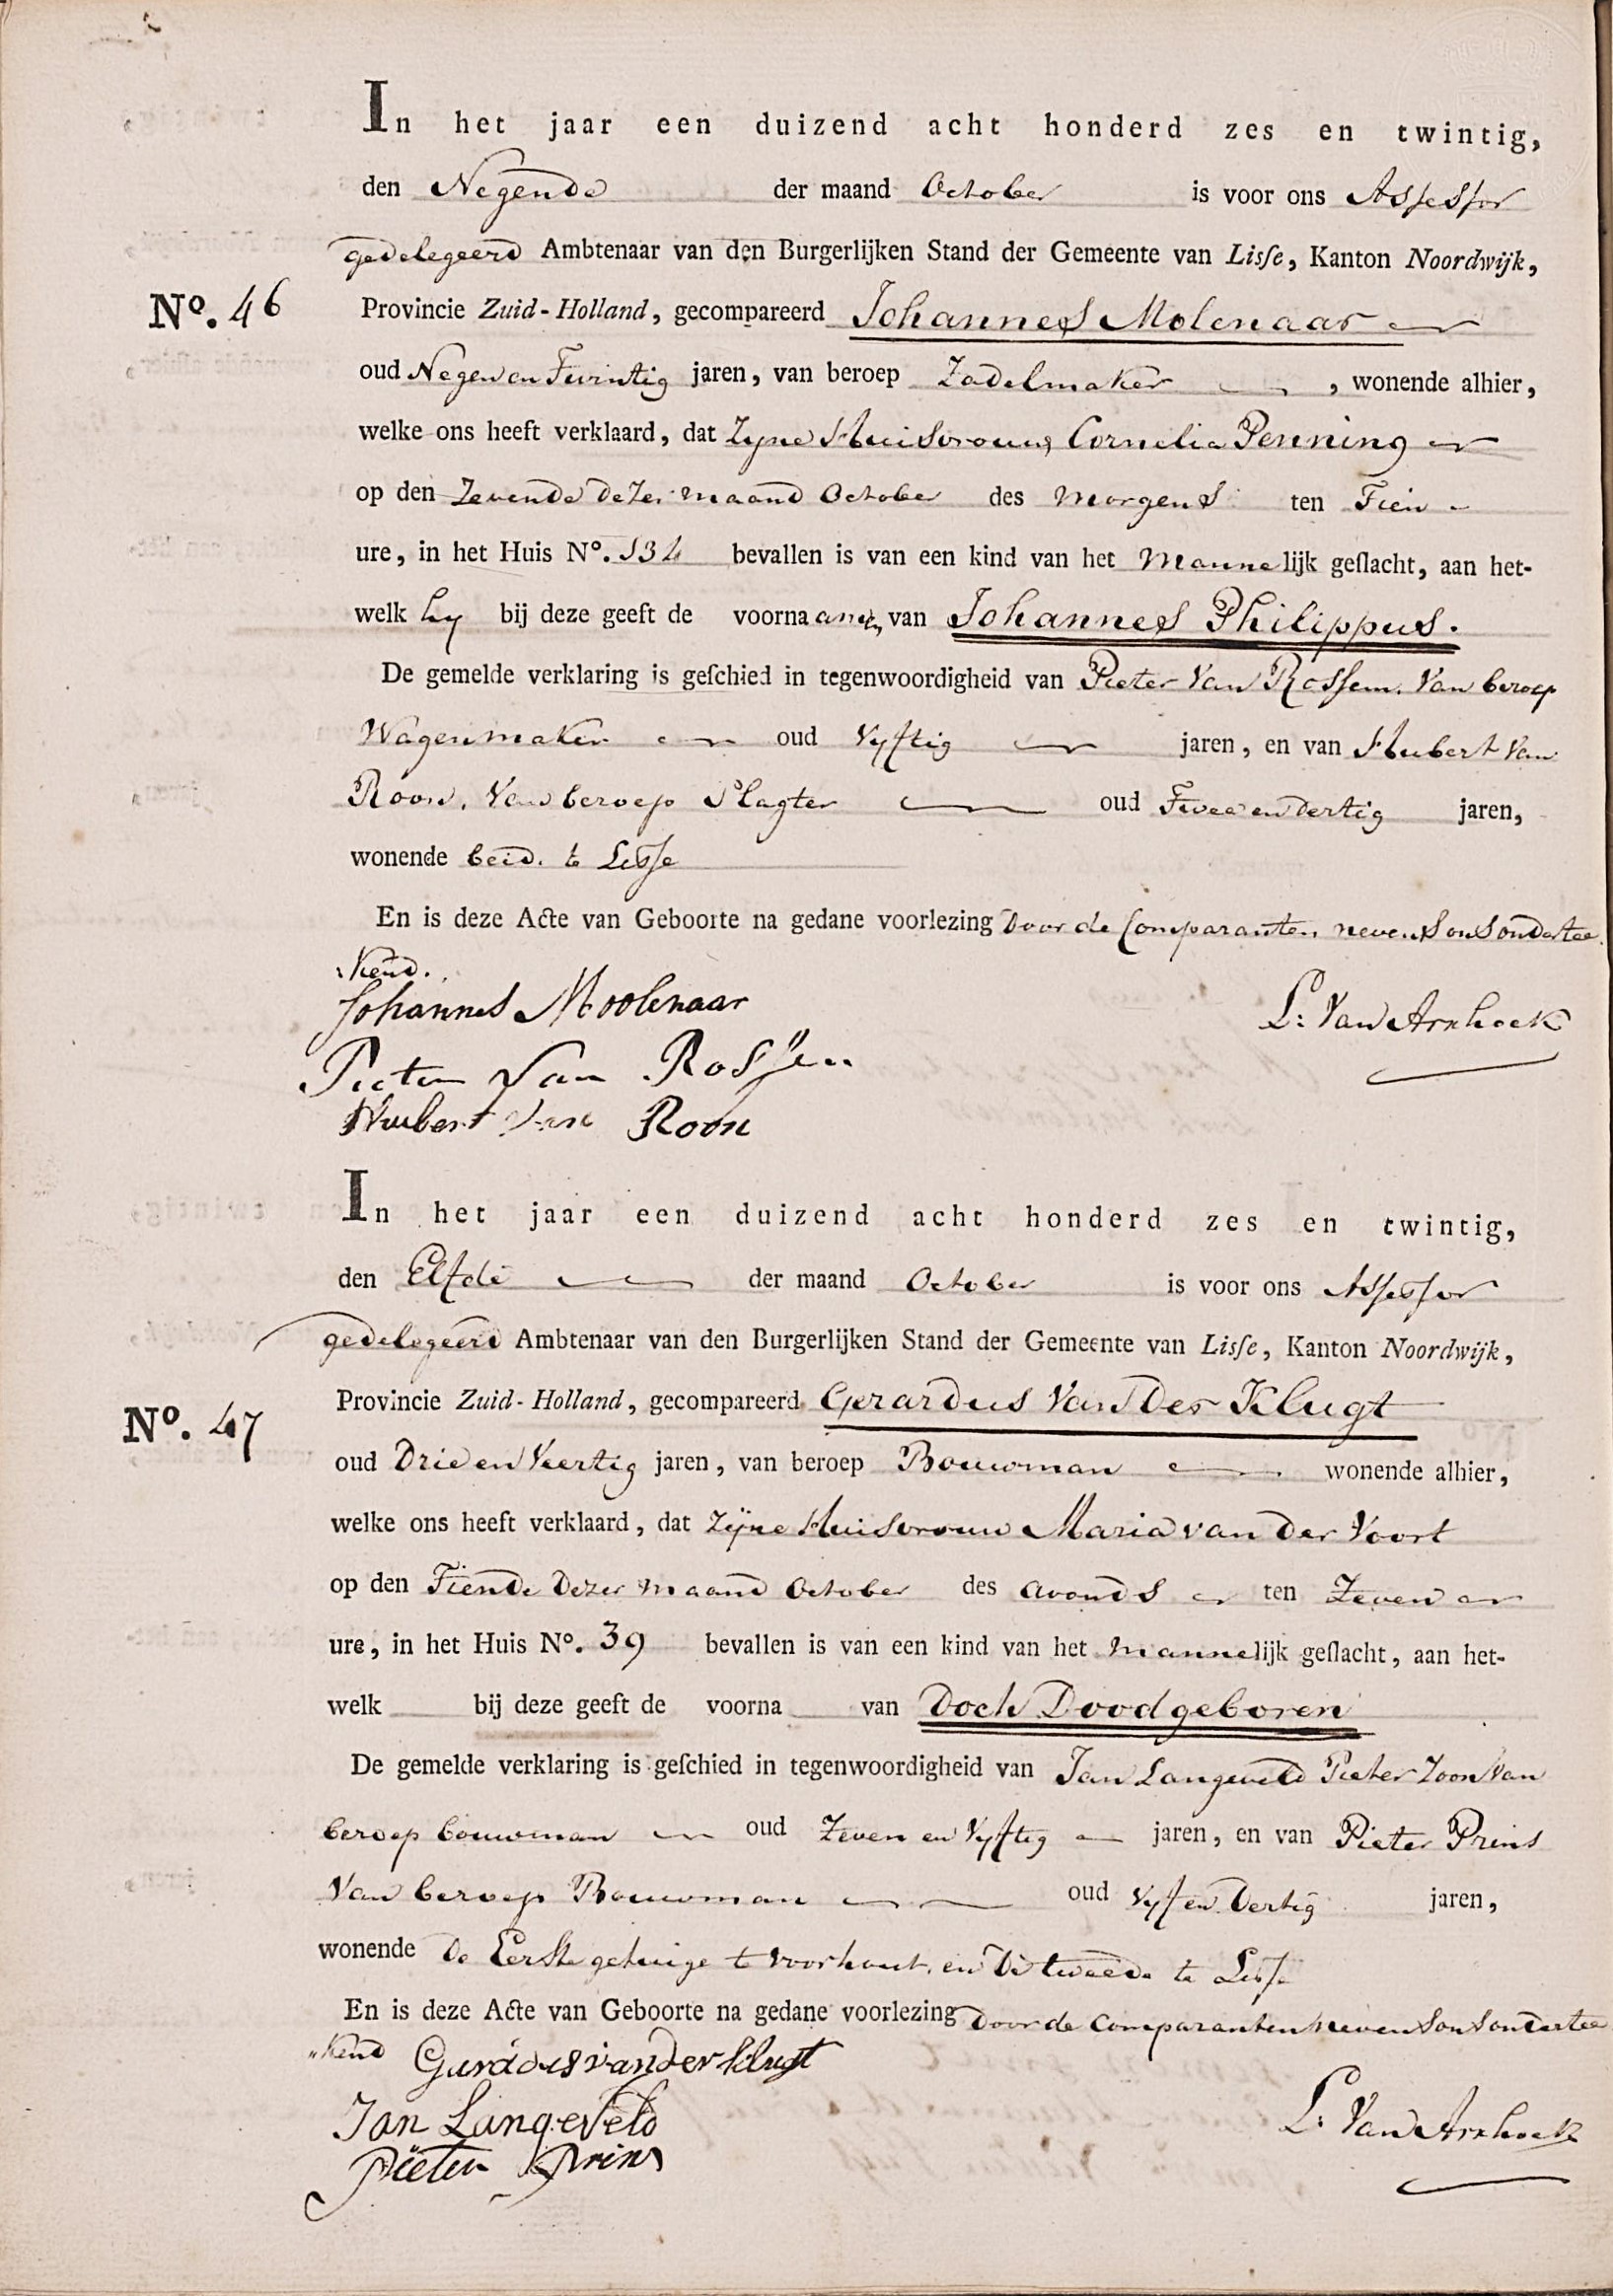 In het jaar een duizend acht honderd zes en twintig,
den Negende der maand October is voor ons Assessor
gedelegeerd Ambtenaar van den Burgerlijken Stand der Gemeente van Lisse, Kanton Noordwijk,
No. 46 Provincie Zuid-Holland, gecompareerd Johannes Molenaar
oud Negen en Twintig jaren, van beroep Zadelmaker, wonende alhier,
welke ons heeft verklaard, dat Zyne Huisvrouw Cornelia Penning
op den Zevende dezer maand October des Morgens ten Tien
ure, in het Huis No. 134 bevallen is van een kind van het Mannelijk geslacht, aan het-
welk hy bij deze geeft de voornaamen van Johannes Philippus.
De gemelde verklaring is geschied in tegenwoordigheid van Pieter Van Rossem. Van beroep
Wagenmaker oud Vyftig jaren, en van Hubert Van
Roon, Van beroep Slagter oud Twee en dertig jaren,
wonende beid. te Lisse
En is deze Acte van Geboorte na gedane voorlezing Door de Comparanten nevens ons ondertee
kend.
Johannes Moolenaar
L: Van Arxhoek
Pieter Van Rossen
Huibert van Roon
In het jaar een duizend acht honderd zes en twintig,
den Elfde der maand October is voor ons Assessor
gedelegeerd Ambtenaar van den Burgerlijken Stand der Gemeente van Lisse, Kanton Noordwijk,
No. 47 Provincie Zuid-Holland, gecompareerd Gerardus Van Der Klugt
oud Drie en Veertig jaren, van beroep Bouwman wonende alhier,
welke ons heeft verklaard, dat Zijne Huisvrouw Maria van der Voort
op den Tiende Dezer maand October des avonds ten Zeven
ure, in het Huis No. 39 bevallen is van een kind van het Mannelijk geslacht, aan het-
welk bij deze geeft de voorna van Doch Dood geboren
De gemelde verklaring is geschied in tegenwoordigheid van Jan Langeveld Pieter Zoon Van
beroep bouwman oud Zeven en Vyftig jaren, en van Pieter Prins
Van beroep Bouwman oud Vyf en Dertig jaren,
wonende De Eerste getuige te Voorhout, en De tweede te Lisse
En is deze Acte van Geboorte na gedane voorlezing Door de Comparanten nevens ons ondertee
"kend Gerardus van der klugt
Jan Langeveld
L: Van Arxhoek
Pieter Prins